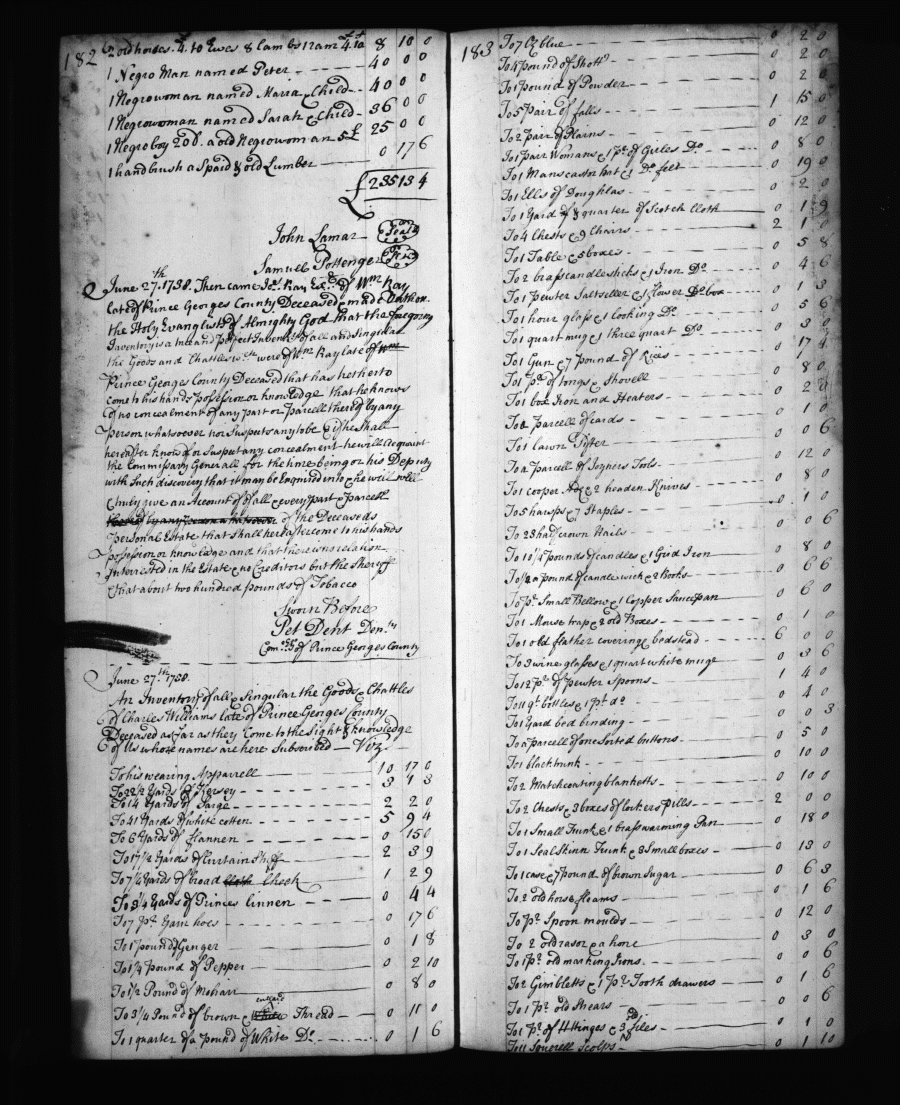 182
2 old horses. £4. 10 Ewes 8 Lambs 1 ram £4.10 8 10 0
1 Negro Man named Peter - 40 0 0
1 Negrowoman named Maria & Child - 40 0 0
1 Negrowoman named Sarah & Child - 36 0 0
1 Negroboy 20£. a old Negrowoman 5£ 25 0 0
1 handbrush a Spaid & old Lumber 0 17 6
£ 235 13 4
John Lamar Seal
Samuel Pottenger
June 27th. 1738. Then came Jos. Ray of Wm Ray
late of Prince Georges County Deceased & made Oath on
the Holy Evangelists of Almighty God that the foregoing
Inventory is a true and perfect Inventory of all and Singular
the Goods and Chattles were of Wm Ray late of
Prince Georges County Deceased that has hetherto
come to his hands possession or knowledge that he knows
of no concealment of any part or parcell thereof by any
person whatsoever nor Suspects any to be & if he Shall
hereafter know of or Suspect any concealment he will acquaint
the Commissary Generall for the time being or his Deputy
with Such discovery that it may be Enquired into & he will well
& truly give an Account of all & every part & parcell
of the Deceaseds
personal Estate that shall hereafter come to his hands
possession or knowledge and that there is no relation
Interrested in the Estate & no Creditors but the Sheriff
& that about two hundred pounds of Tobacco
Sworn Before
Pet Dent Depty
Comry of Prince Georges County
June 27th 1738.
An Inventory of all & Singular the Goods & Chattles
of Charles Williams late of Prince Georges County
Deceased as far as they Come to the sight & knowledge
of Us whose names are here Subscribed - Viz.
To his wearing Apparrell 10 17 0
To 22 1/2 Yards of Kersey
To 14 Yards of Sarge 2 2 0
To 41 Yards of white cotten 5 9 4
To 6 Yards of flannen 0 15 0
To 17 1/2 Yards of Curtain Stuff 2 3 9
To 7 1/4 Yards of broad Check 1 2 9
To 3 1/4 Yards of Princes linnen 0 4 4
To 7 pr. Yarn hoes 0 17 6
To 1 pound of Genger 0 1 8
To 1 1/4 pound of Pepper 0 2 10
To 1/2 Pound of Mohair 0 8 0
To 3/4 Pound of brown & Thread 0 11 0
To 1 quarter of a pound of White Do. 0 1 6
183
To 7 lb blue 0 2 0
To 4 pound of Shott 0 2 0
To 1 pound of Powder 0 2 0
To 5 pair of falls 1 15 0
To 2 pair of Harns 0 12 0
To 1 pair Womans & 1 pr. of Girles Do 0 8 0
To 1 Mans castor hat & 1 Do felt 0 19 0
To 1 Ells of Doughlas 0 2 0
To 1 Yard & quarter of Scotch Cloth 0 1 9
To 4 Chests & 9 Chairs 2 1 0
To 1 Table & 5 boxes 0 5 8
To 2 brass candlesticks & 1 Iron Do 0 4 6
To 1 pewter Saltseller & 1 flower Do box 0 1 3
To 1 hour glass & 1 looking Do 0 5 6
To 1 quart mug & 1 three quart Do 0 3 0
To 1 Gun & 7 pound of Rice
To 1 pr of tongs & Shovell 0 8 0
To 1 box Iron and Heaters
To a Parcell of cards 0 1 0
To 1 Lawn Sifter 0 0 6
To a Parcell of Joyners Tools 0 12 0
To 1 cooper & 2 headen Knives 0 8 0
To 5 hawsps & 7 Staples 0 1 0
To 23 half crown Nails 0 0 6
To 10 1/4 pounds of candles & 1 Grid Iron 0 8 0
To 1/2 a pound of candlewick & 2 Books 0 6 6
To pr. Small Bellow & 1 Copper Saucepan 0 6 0
To 1 Mouse trap & 2 old Boxes 0 1 0
To 1 old feather covering & bedstead 6 0 0
To 3 wine glasses & 1 quart white muge 0 3 6
To 12 pr. of pewter Spoons 1 4 0
To 11 qt. bottles & 1 pt. do 0 4 0
To 1 Yard bed binding 0 0 3
To a parcell of one sorted buttons 0 5 0
To 1 black trunk 0 10 0
To 2 Matchcoating blanketts 0 10 0
To 2 Chests & 3 boxes of lockers pills 2 0 0
To 1 Small Trunk & 1 brass warming Pan 0 18 0
To 1 Seal Skinn Trunk & 3 Small boxes 0 13 0
To 1 case & 7 pound of brown Sugar 0 6 3
To 2 old horse fleams 0 1 6
To pr. Spoon moulds 0 12 0
To 2 old rasor & a hone 0 3 0
To 1 pr. old marking Irons 0 0 6
To 2 Gimbletts & 1 pr. Tooth drawers 0 1 6
To 1 pr. old Shears 0 0 6
To 1 pr of H Hinges & 3 old files 0 1 0
To 11 Squorell Scolps 0 1 10